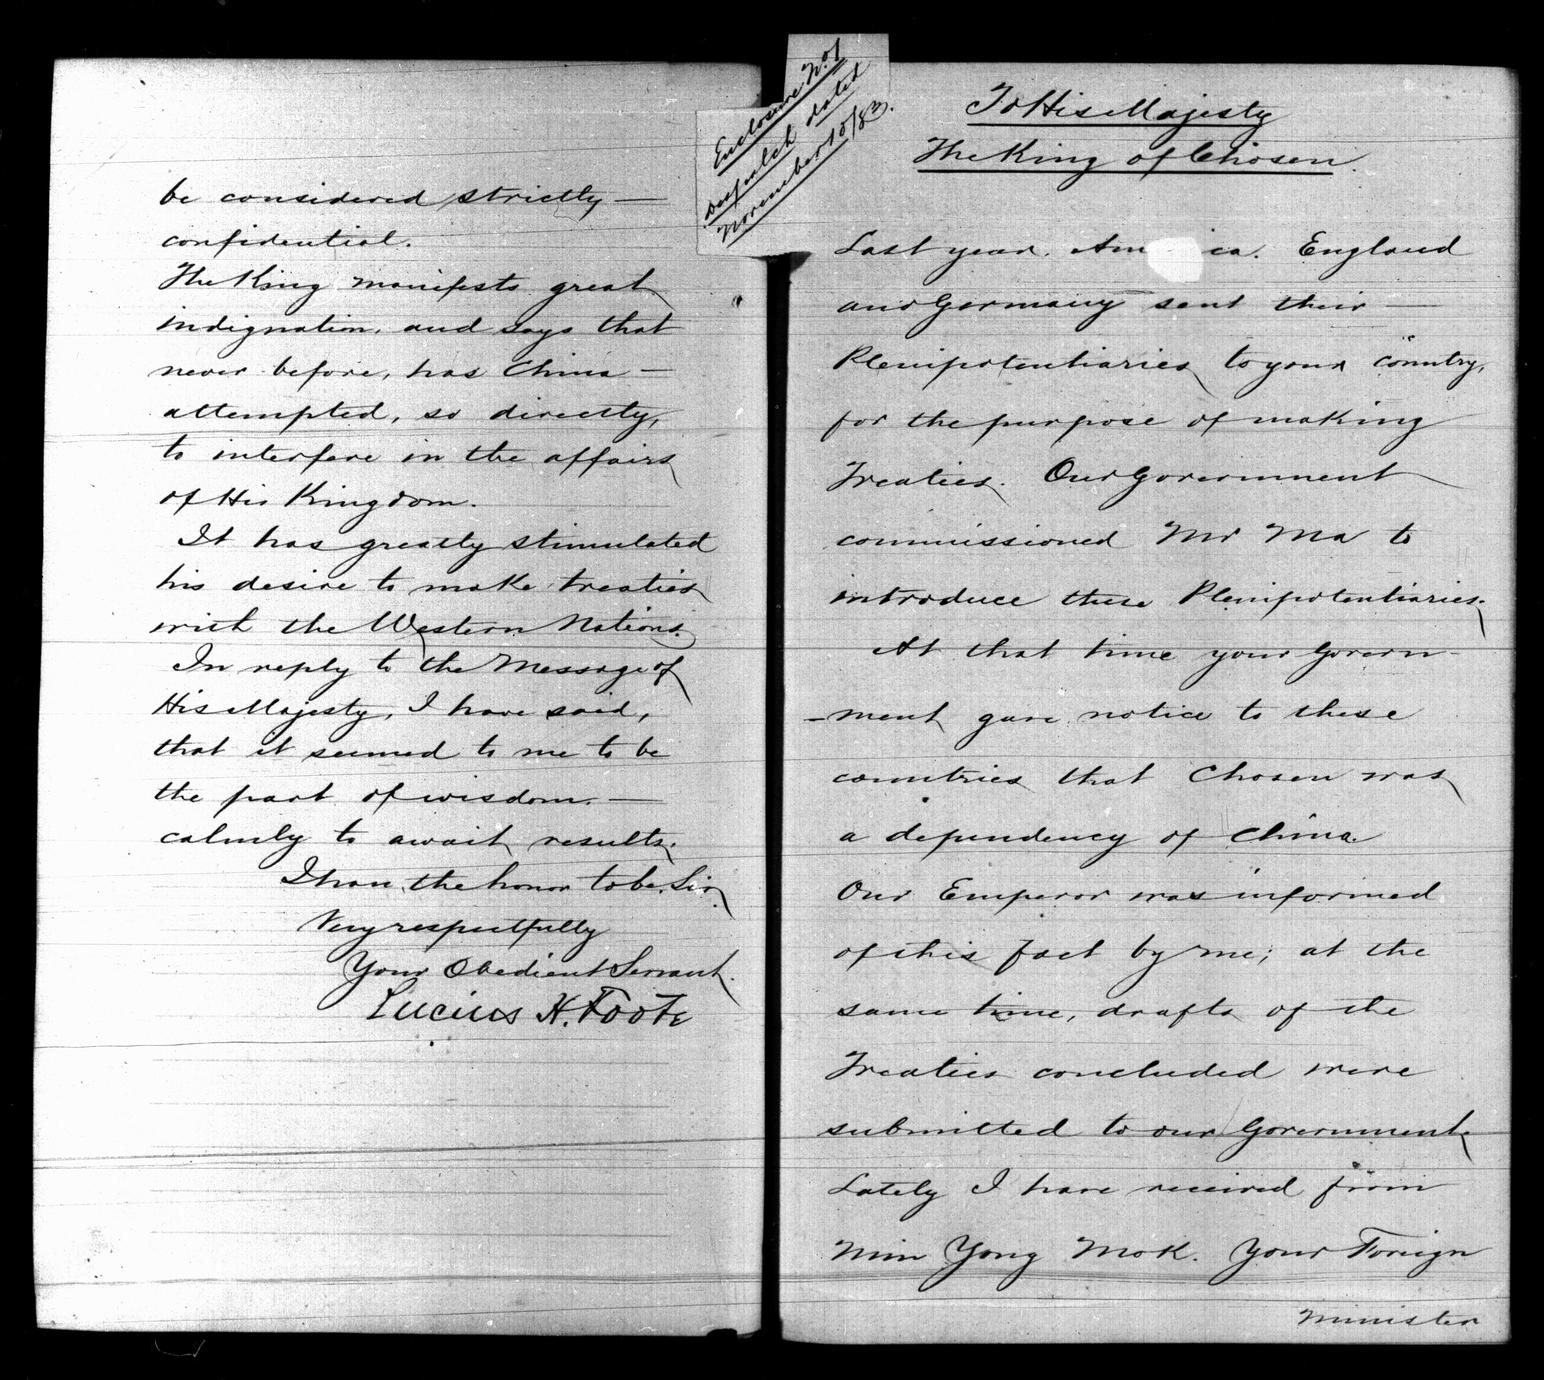 be considered strictly —
confidential.
The King manifests great
indignation, and says that
never before, has China —
attempted, so directly,
to interfere in the affairs
of His Kingdom.
It has greatly stimulated
his desire to make treaties
with the Western Nations.
In reply to the Message of
His Majesty, I have said,
that it seemed to me to be
the part of wisdom. —
calmly to await results.
I have the honor to be, Sir,
Very respectfully
Your Obedient Servant.
Lucius H. Foote
Enclosure No 1
Despatch dated
November 10/83.
To His Majesty
The King of Chosen.
Last year. Am ca. England
and Germany sent their —
Plenipotentiaries to your country,
for the purpose of making
Treaties. Our Government
commissioned Mr Ma to
introduce these Plenipotentiaries.
At that time your Govern-
-ment gave notice to these
countries that Chosen was
a dependency of China.
Our Emperor was informed
of this fact by me; at the
same time, drafts of the
Treaties concluded were
submitted to our Government.
Lately I have received from
Min Yong Mok. Your Foreign
Minister